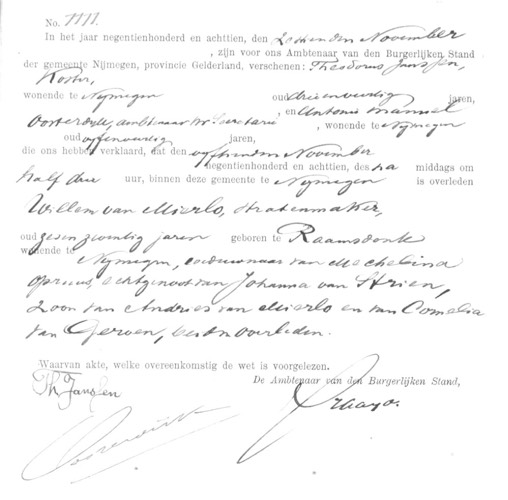 No. 1111.
In het jaar negentienhonderd en achttien, den zestienden November
, zijn voor ons Ambtenaar van den Burgerlijken Stand
der gemeente Nijmegen, provincie Gelderland, verschenen: Theodorus Janssen,
Koster,
wonende te Nijmegen oud jaren,
, en Antonie Manuel
ambtenaar ter Secretarie , wonende te Nijmegen
oud jaren,
die ons hebben verklaard, dat den November
negentienhonderd en achttien, des na middags om
half drie uur, binnen deze gemeente te Nijmegen is overleden
Willem van Mierlo, stratenmaker,
oud zesenzeventig jaren geboren te Raamsdonk
wonende te
Nijmegen, weduwnaar van Mechelina
echtgenoot van Johanna van Strien,
zoon van Andries van Mierlo en van Cornelia
van Gerven, beiden overleden.
Waarvan akte, welke overeenkomstig de wet is voorgelezen.
De Ambtenaar van den Burgerlijken Stand,
Th. Janssen